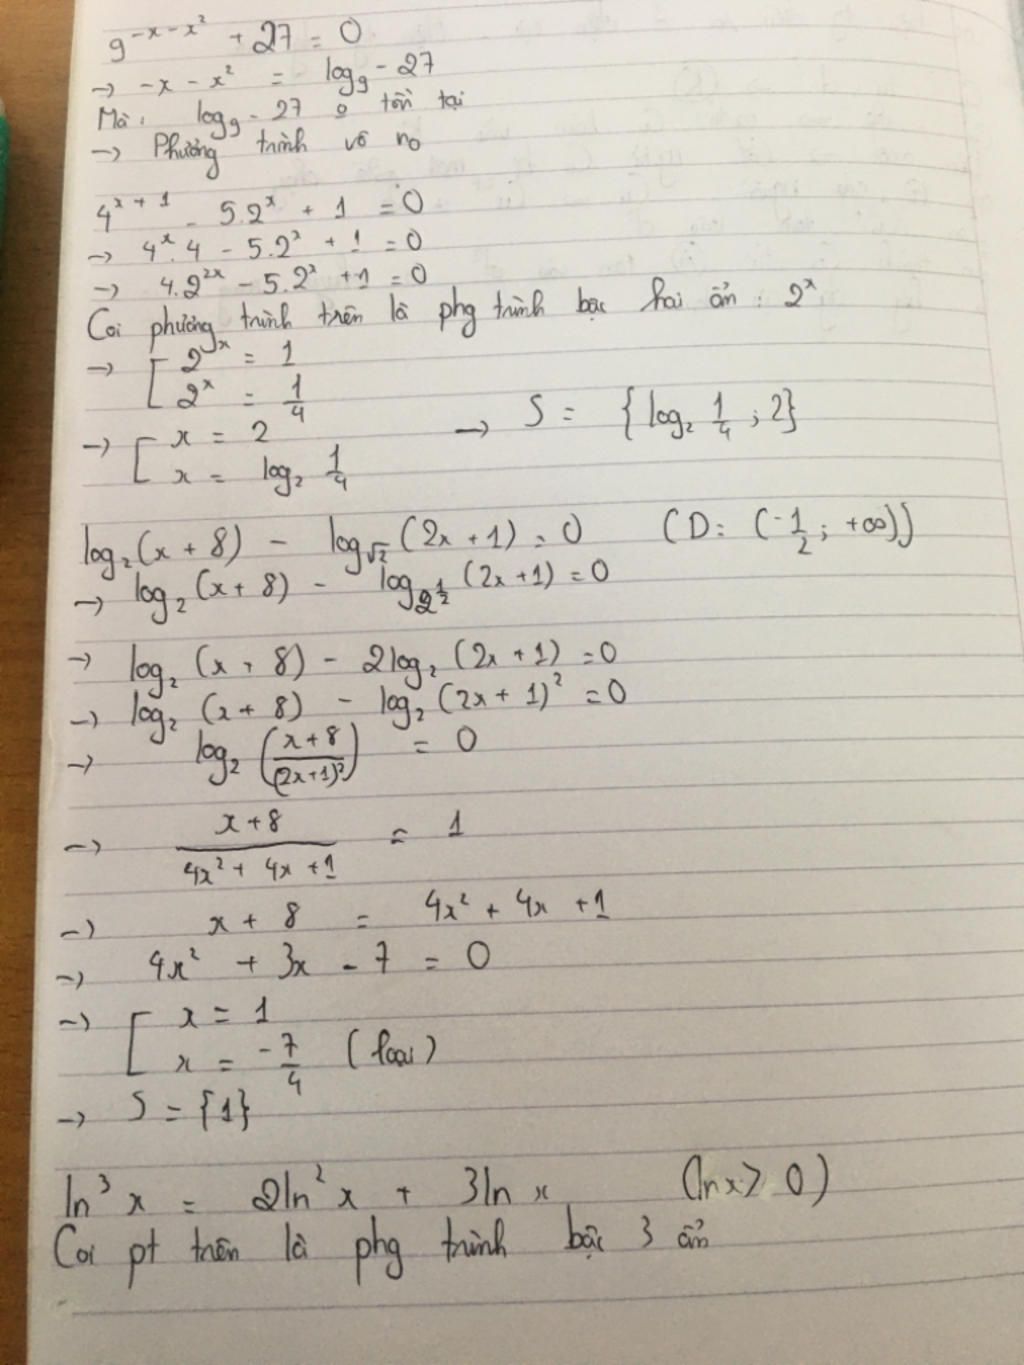 9^{-x-x²} + 27 = 0
→ -x - x² = log₉ - 27
Mà: log₉ - 27 o tồn tại
→ Phương trình vô no
4^{x+1} - 5.2^x + 1 = 0
→ 4^x.4 - 5.2^x + 1 = 0
→ 4.2^{2x} - 5.2^x + 1 = 0
Coi phương trình trên là phg trình bậc hai ẩn: 2^x
→ [ 2^x = 1
2^x = 1/4
→ [ x = 2 → S = {log₂ 1/4 ; 2}
x = log₂ 1/4
log₂(x + 8) - log_{√2}(2x + 1) = 0 (D: (-1/2 ; +∞))
→ log₂(x + 8) - log_{2^{1/2}}(2x + 1) = 0
→ log₂(x + 8) - 2log₂(2x + 1) = 0
→ log₂(x + 8) - log₂(2x + 1)² = 0
→ log₂((x+8)/(2x+1)²) = 0
→ (x+8)/(4x² + 4x + 1) = 1
→ x + 8 = 4x² + 4x + 1
→ 4x² + 3x - 7 = 0
→ [ x = 1
x = -7/4 (loại)
→ S = {1}
ln³x = 2ln²x + 3ln x (ln x > 0)
Coi pt trên là phg trình bậc 3 ẩn